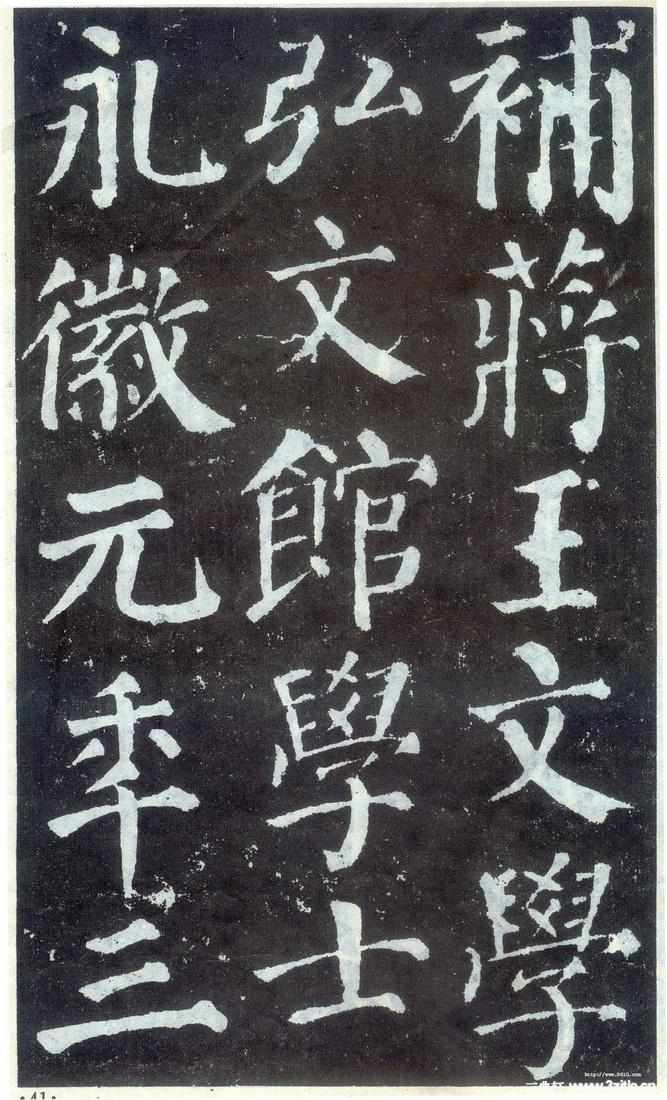 補蔣王文學
弘文館學士
永徽元年三
·41·
http://www.3d1G.com